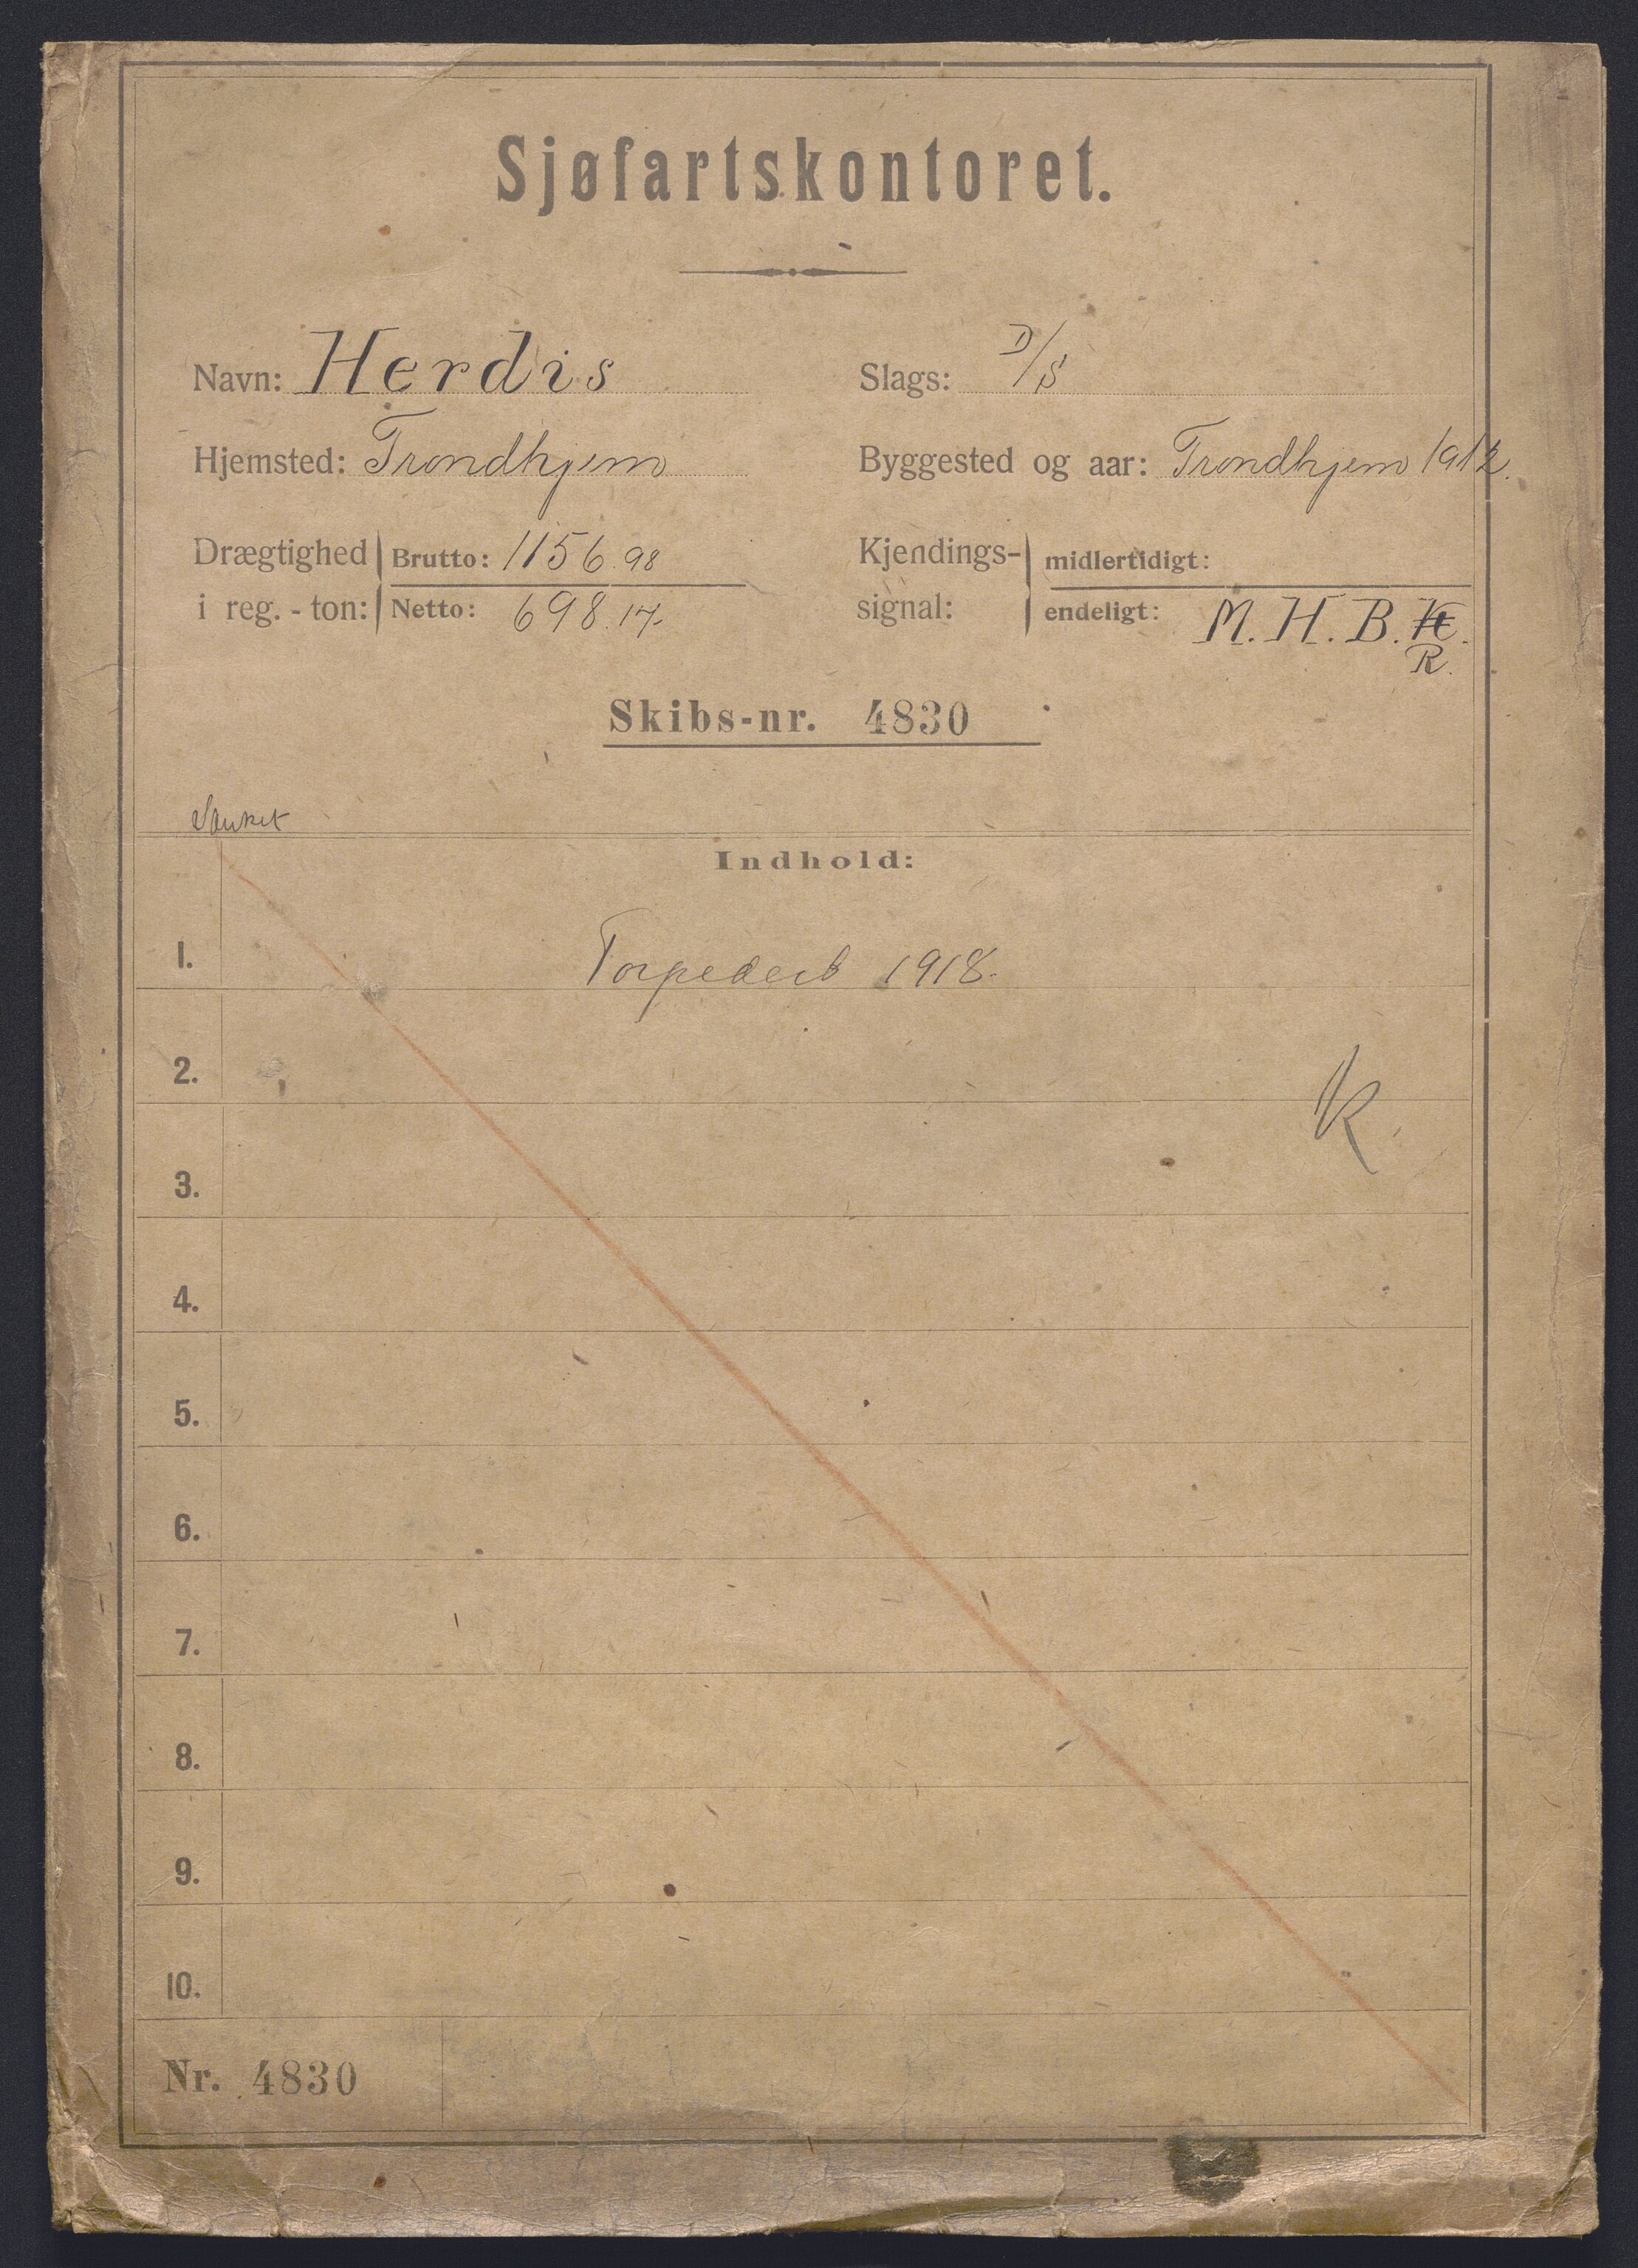 Sjøfartskontoret.
Navn: Herdis
Slags: D/S
Hjemsted: Trondhjem
Byggested og aar: Trondhjem 1912.
Drægtighed i reg.-ton: Brutto: 1156.98
Netto: 698.17.
Kjendings-signal: midlertidigt:
endeligt: M. H. B. K.
R.
Skibs-nr. 4830
Sænket
Indhold:
1. Torpedert 1918.
2.
K
3.
4.
5.
6.
7.
8.
9.
10.
Nr. 4830